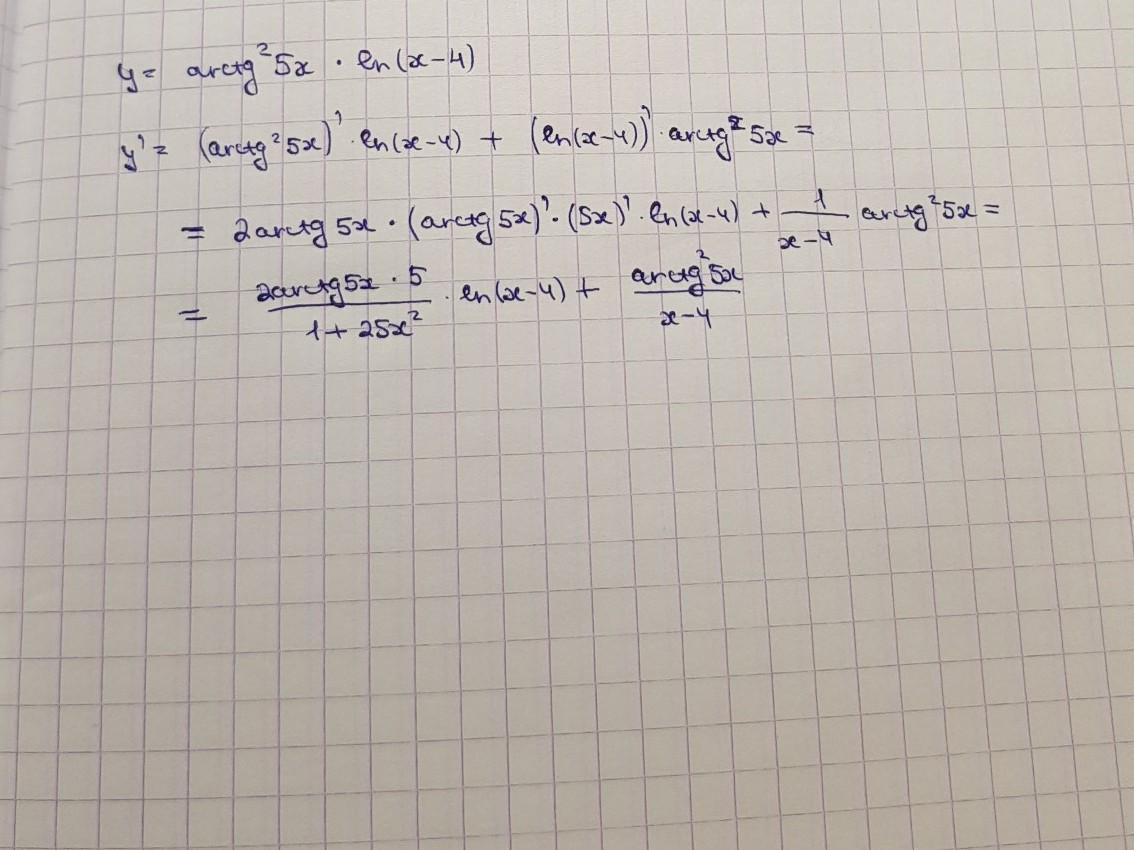 y = arctg²5x · ln(x-4)
y' = (arctg²5x)' · ln(x-4) + (ln(x-4))' · arctg²5x =
= 2arctg 5x · (arctg 5x)' · (5x)' · ln(x-4) + 1/(x-4) arctg²5x =
= (2arctg5x · 5)/(1+25x²) · ln(x-4) + (arctg²5x)/(x-4)